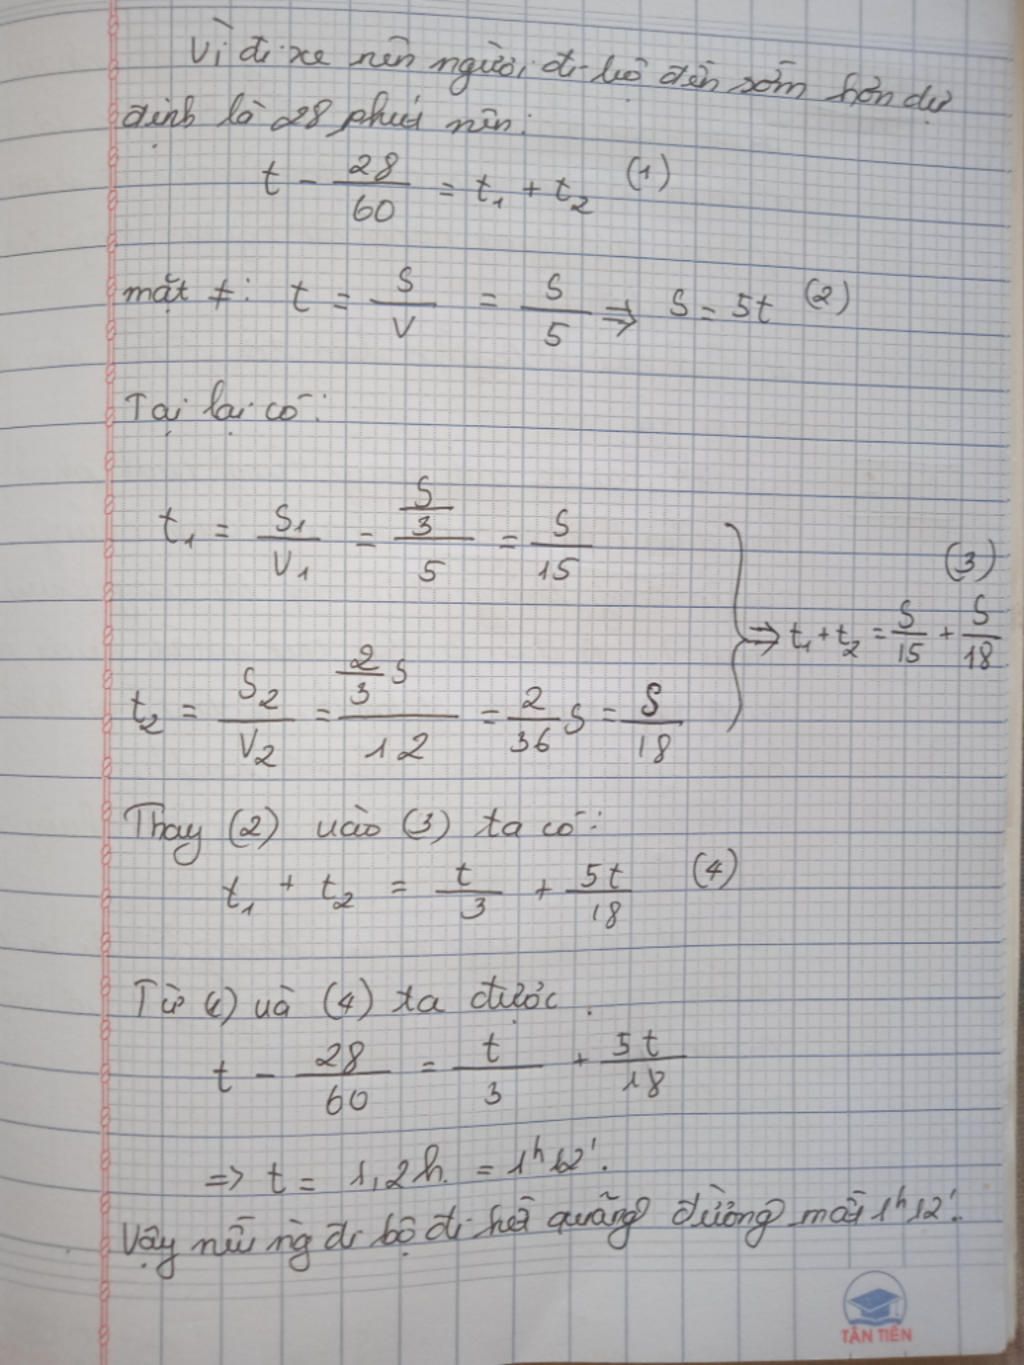 Vì đi xe nên người đi bộ đến sớm hơn dự
định là 28 phút nên:
t - 28/60 = t₁ + t₂ (1)
mặt ≠: t = S/V = S/5 ⇒ S = 5t (2)
Tại lại có:
t₁ = S₁/V₁ = (S/3)/5 = S/15
⇒ t₁ + t₂ = S/15 + S/18 (3)
t₂ = S₂/V₂ = (2/3 S)/12 = 2/36 S = S/18
Thay (2) vào (3) ta có:
t₁ + t₂ = t/3 + 5t/18 (4)
Từ (1) và (4) ta được.
t - 28/60 = t/3 + 5t/18
⇒ t = 1,2h. = 1h12'.
Vậy nếu ng đi bộ đi hết quãng đường mất 1h12'.
TÂN TIẾN